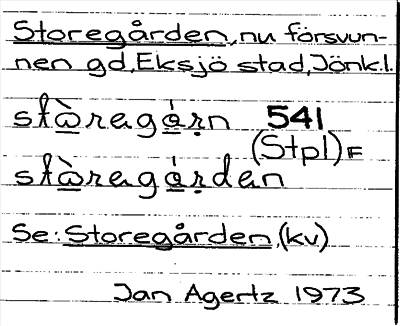 Storegården, nu försvun-
nen gd, Eksjö stad, Jönk.l.
stὼ̲regá̲ṛn 541
(Stpl) F
stὼ̲regá̲ṛden
Se: Storegården, (kv)
Jan Agertz 1973